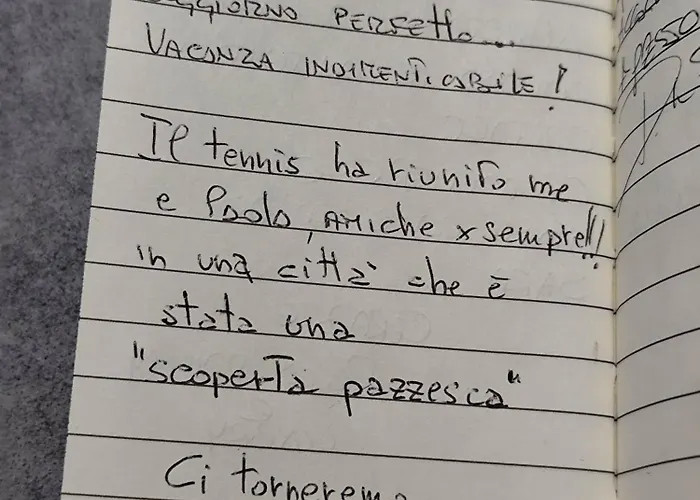 SOGGIORNO PERFETTO...
VACANZA INDIMENTICABILE!
Il tennis ha riunito me
e Paola, AMICHE x sempre!!!
in una città che è
stata una
"scoperta pazzesca"
Ci torneremo